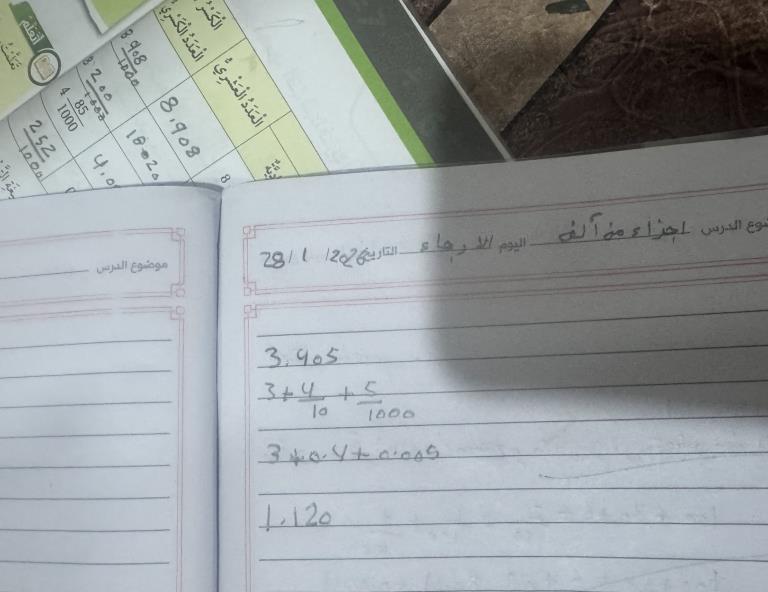 أتعلم
الكسر
العدد الكسري
العدد العشري
8 908/1000
8.908
8 200/1000
4 85/1000
252/1000
موضوع الدرس
موضوع الدرس اجزاء من ألف اليوم الاربعاء التاريخ 28/1/2026
3.405
3+4/10+5/1000
3+0.4+0.005
1.120